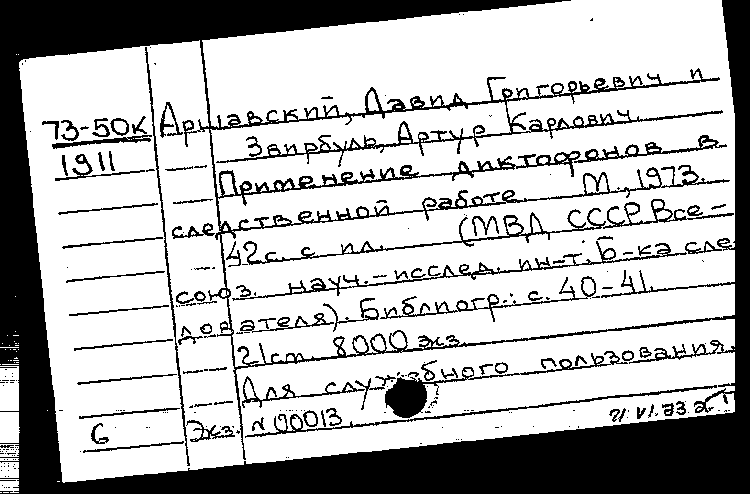 73-50к Аршавский, Давид Григорьевич и
1911 Звирбуль, Артур Карлович.
Применение диктафонов в
следственной работе. М., 1973.
42 с. с ил. (МВД СССР. Все-
союз. науч.-исслед. ин-т. Б-ка сле-
дователя). Библиогр.: с. 40-41.
21 см. 8000 экз.
Для служебного пользования.
6 Экз. N 00013.
21 VI.73